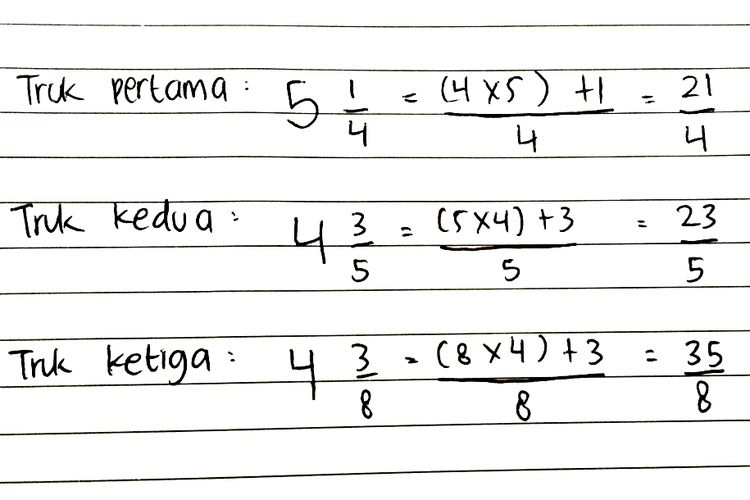 Truk pertama : 5 1/4 = (4 x 5) + 1 / 4 = 21/4
Truk kedua : 4 3/5 = (5 x 4) + 3 / 5 = 23/5
Truk ketiga : 4 3/8 = (8 x 4) + 3 / 8 = 35/8